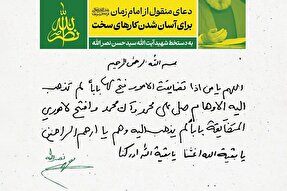 دعای منقول از امام زمان
برای آسان شدن کارهای سخت
به دستخط شهید آیت‌الله سید حسن نصرالله
نصر الله
بسم الله الرحمن الرحیم
اللهم یا من اذا تضایقت الامور فتح لها باباً لم تذهب
الیه الاوهام صل علی محمد و آل محمد و افتح لاموری
المتضایقة باباً لم یذهب الیه وهم یا ارحم الراحمین
یا بقیة الله اغثنا یا بقیة الله ادرکنا
نصرالله